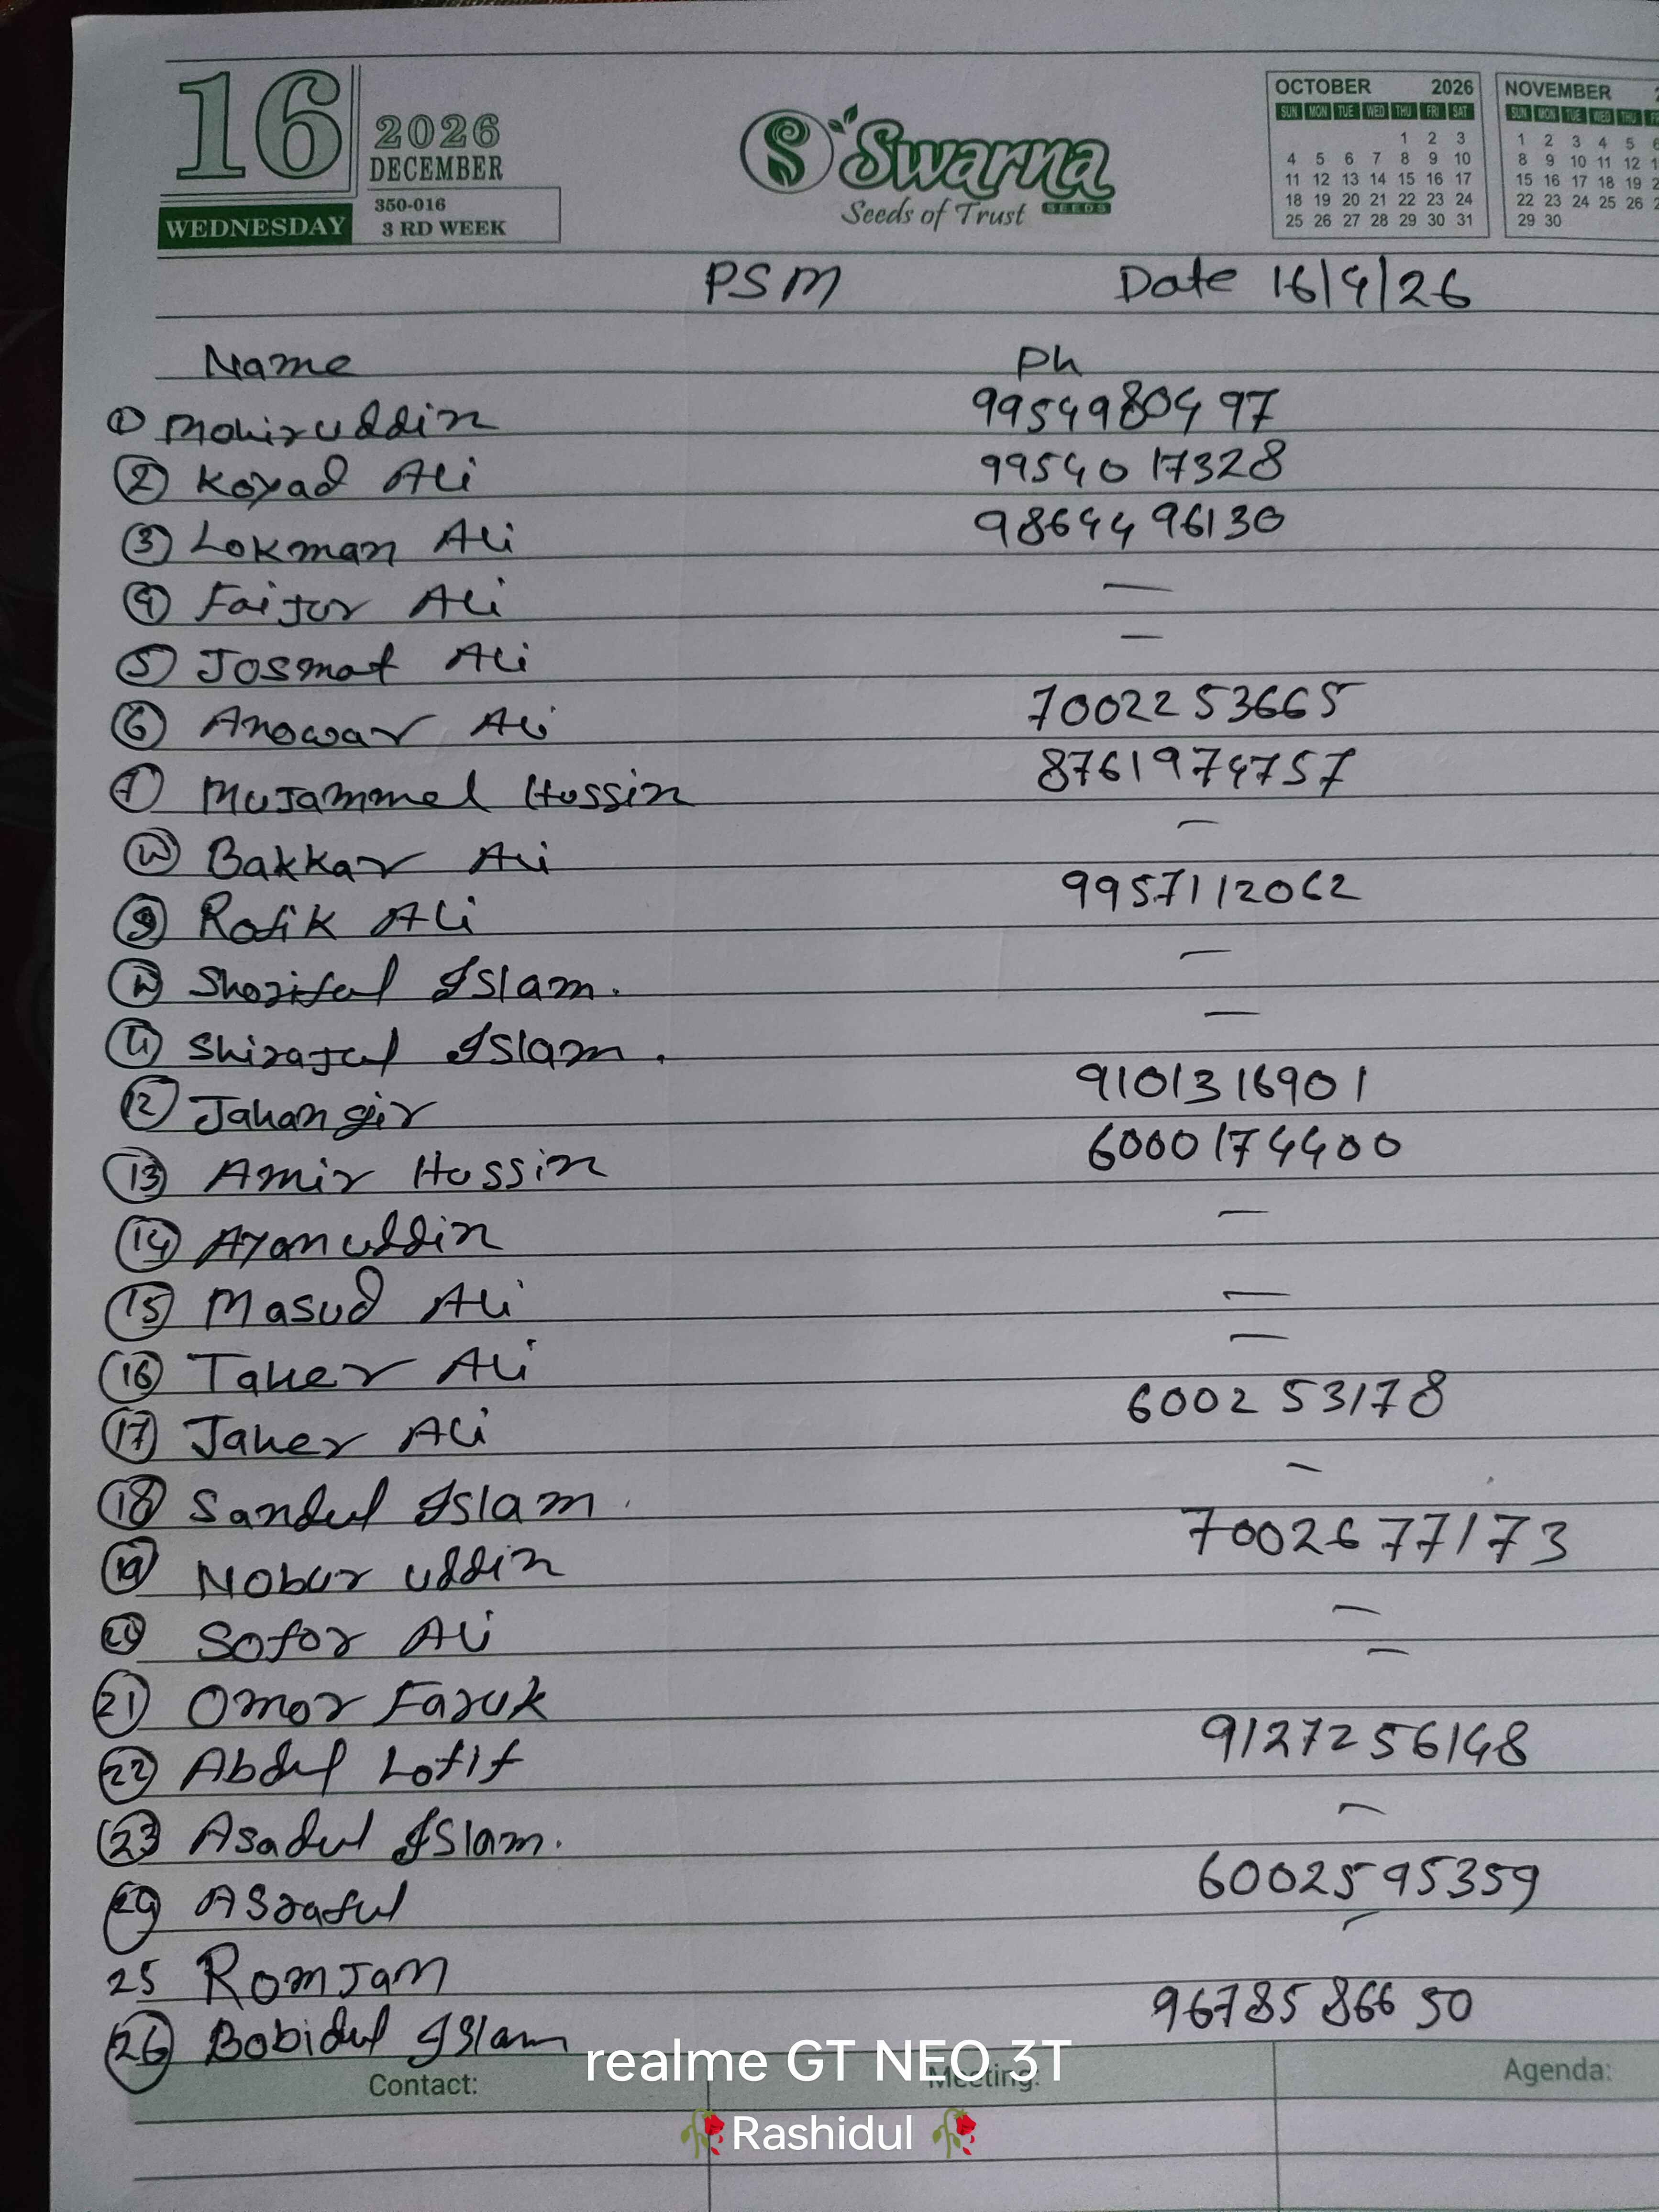 16
2026
DECEMBER
WEDNESDAY
350-016
3 RD WEEK
Swarna
SEEDS
Seeds of Trust
OCTOBER 2026
SUN MON TUE WED THU FRI SAT
1 2 3
4 5 6 7 8 9 10
11 12 13 14 15 16 17
18 19 20 21 22 23 24
25 26 27 28 29 30 31
NOVEMBER
SUN MON TUE WED THU
1 2 3 4 5
8 9 10 11 12
15 16 17 18 19
22 23 24 25 26
29 30
PSM Date 16/4/26
Name Ph
1 Mohiruddin 9954980497
2 Koyad Ali 9954017328
3 Lokman Ali 9864496130
4 Faijur Ali —
5 Josmat Ali —
6 Anowar Ali 7002253665
7 Mujammel Hussin 8761974757
Bakkar Ali —
9 Rofik Ali 9957112062
Shoriful Islam. —
11 Shirajul Islam. —
12 Jahangir 9101316901
13 Amir Hussin 6000174400
14 Aynuddin —
15 Masud Ali —
16 Taher Ali —
17 Jaher Ali 600253178
18 Sandul Islam. —
19 Nobur uddin 7002677173
20 Sofor Ali —
21 Omor Faruk —
22 Abdul Lotif 9127256148
23 Asadul Islam. —
24 Asraful 6002595359
25 Romjan —
26 Bobidul Islam 9678586650
realme GT NEO 3T
Contact: Meeting: Agenda:
Rashidul